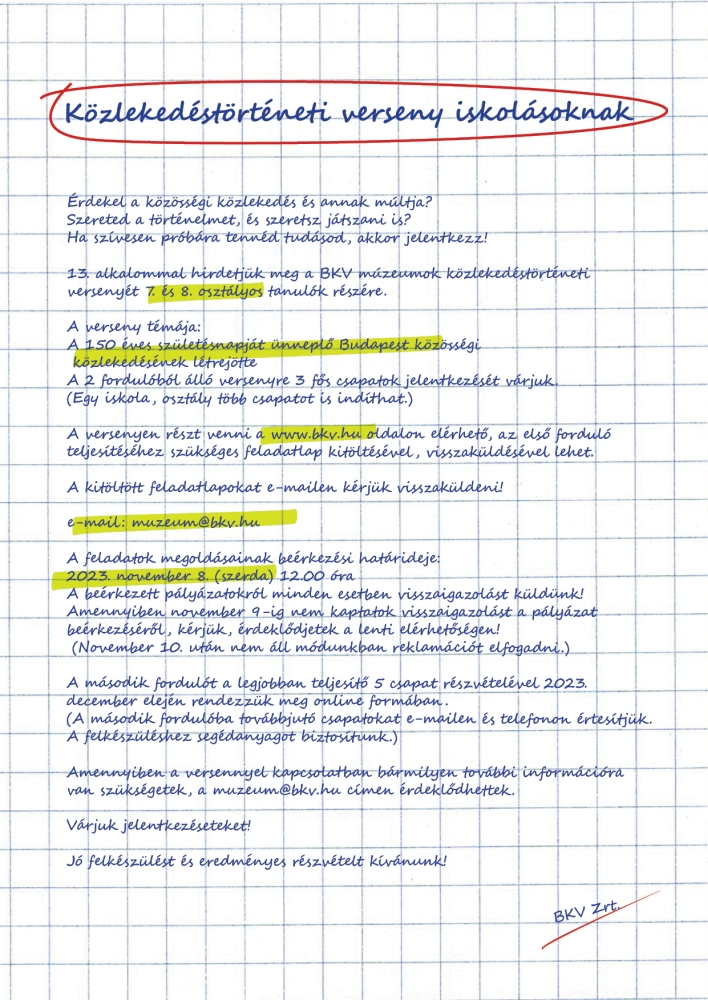 Közlekedéstörténeti verseny iskolásoknak
Érdekel a közösségi közlekedés és annak múltja?
Szereted a történelmet, és szeretsz játszani is?
Ha szívesen próbára tennéd tudásod, akkor jelentkezz!
13. alkalommal hirdetjük meg a BKV múzeumok közlekedéstörténeti
versenyét 7. és 8. osztályos tanulók részére.
A verseny témája:
A 150 éves születésnapját ünneplő Budapest közösségi
közlekedésének létrejötte
A 2 fordulóból álló versenyre 3 fős csapatok jelentkezését várjuk.
(Egy iskola, osztály több csapatot is indíthat.)
A versenyen részt venni a www.bkv.hu oldalon elérhető, az első forduló
teljesítéséhez szükséges feladatlap kitöltésével, visszaküldésével lehet.
A kitöltött feladatlapokat e-mailen kérjük visszaküldeni!
e-mail: muzeum@bkv.hu
A feladatok megoldásainak beérkezési határideje:
2023. november 8. (szerda) 12.00 óra
A beérkezett pályázatokról minden esetben visszaigazolást küldünk!
Amennyiben november 9-ig nem kaptatok visszaigazolást a pályázat
beérkezéséről, kérjük, érdeklődjetek a lenti elérhetőségen!
(November 10. után nem áll módunkban reklamációt elfogadni.)
A második fordulót a legjobban teljesítő 5 csapat részvételével 2023.
december elején rendezzük meg online formában.
(A második fordulóba továbbjutó csapatokat e-mailen és telefonon értesítjük.
A felkészüléshez segédanyagot biztosítunk.)
Amennyiben a versennyel kapcsolatban bármilyen további információra
van szükségetek, a muzeum@bkv.hu címen érdeklődhettek.
Várjuk jelentkezéseteket!
Jó felkészülést és eredményes részvételt kívánunk!
BKV Zrt.